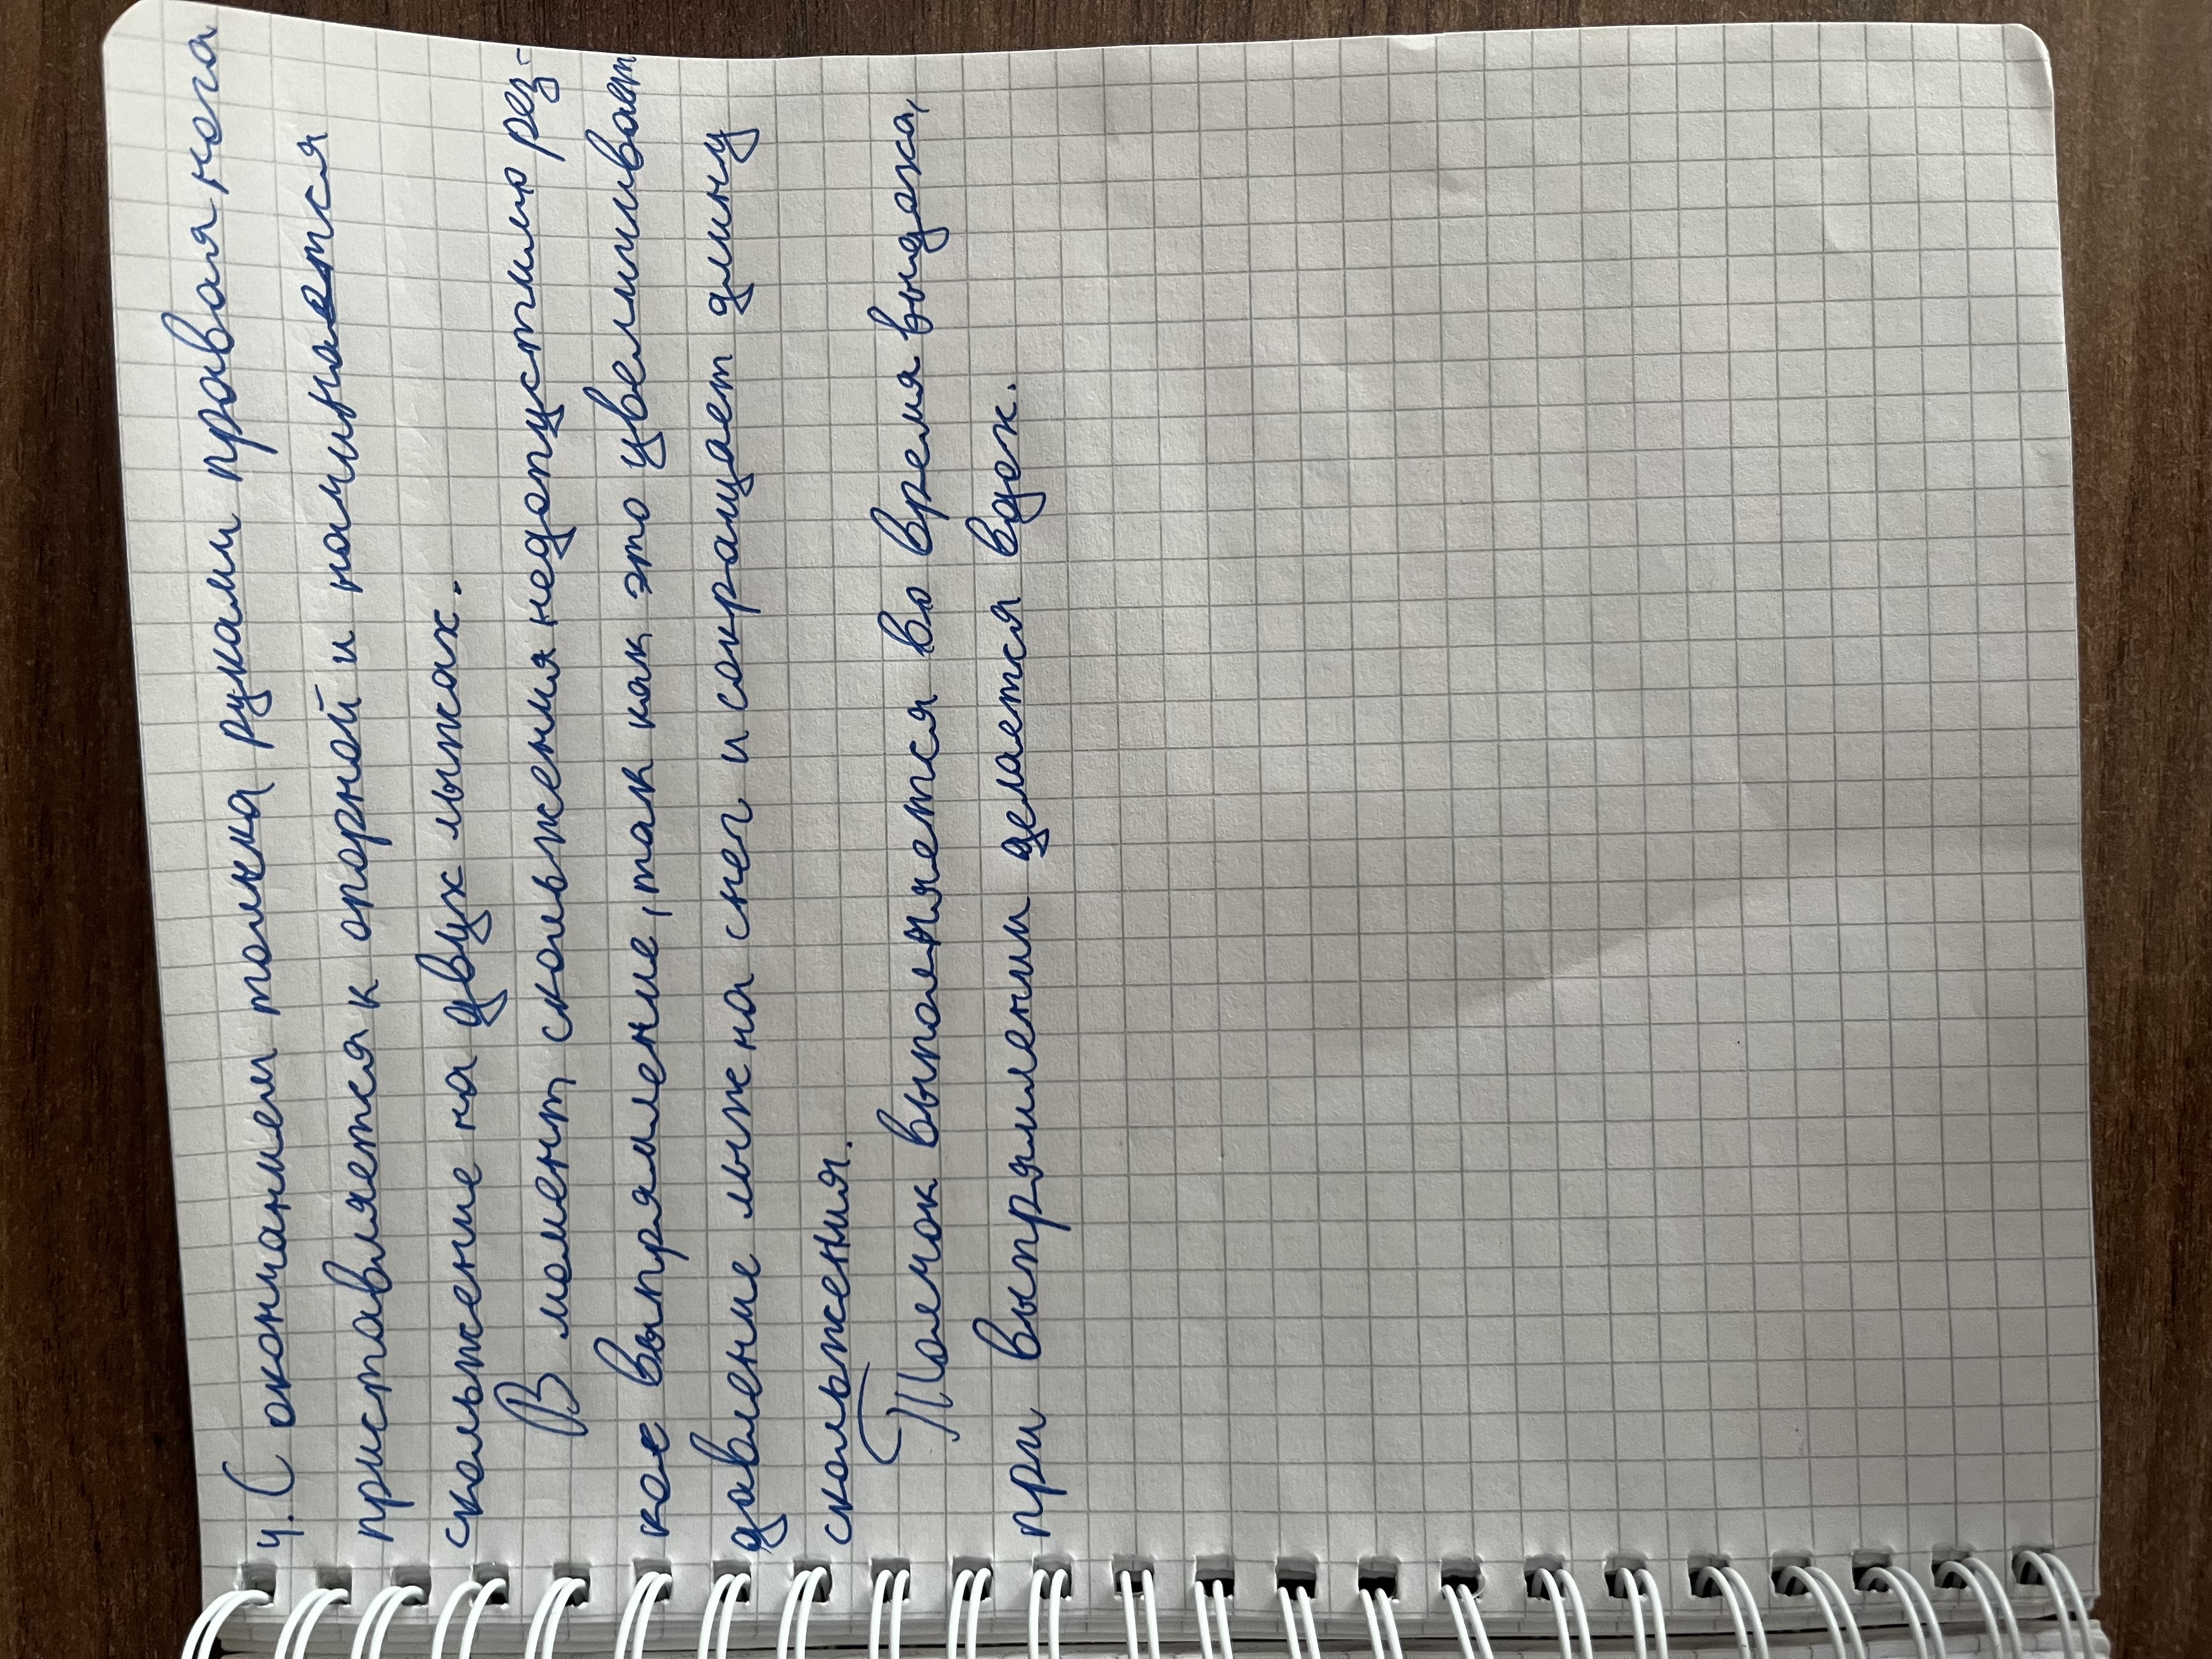 4. С окончанием толчка руками правая нога
приставляется к опорной и начинается
скольжение на двух лыжах.
В момент скольжения недопустимо рез-
кое выпрямление, так как это увеличивает
давление лыж на снег и сокращает длину
скольжения.
Толчок выполняется во время выдоха,
при выпрямлении делается вдох.